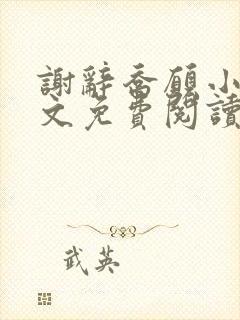 謝辭喬願小
文免費閱讀
武英